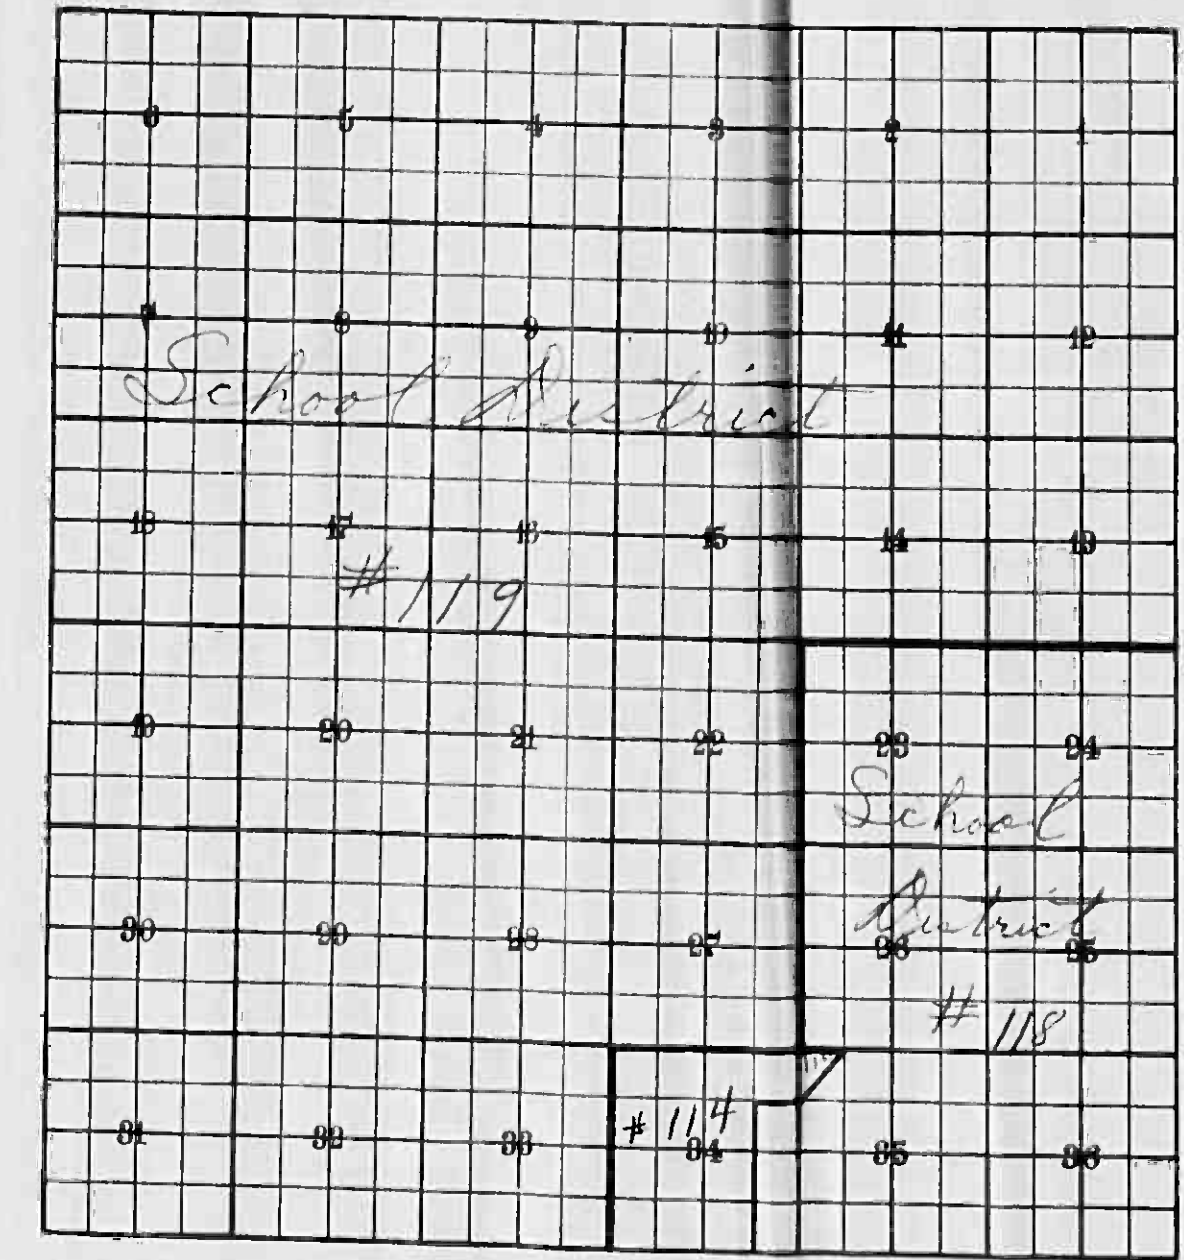 6 5 4 3 2 1
7 8 9 10 11 12
School District
18 17 16 15 14 13
# 119
19 20 21 22 23 24
School
30 29 28 27 26 25
District
# 118
# 114
31 32 33 34 35 36